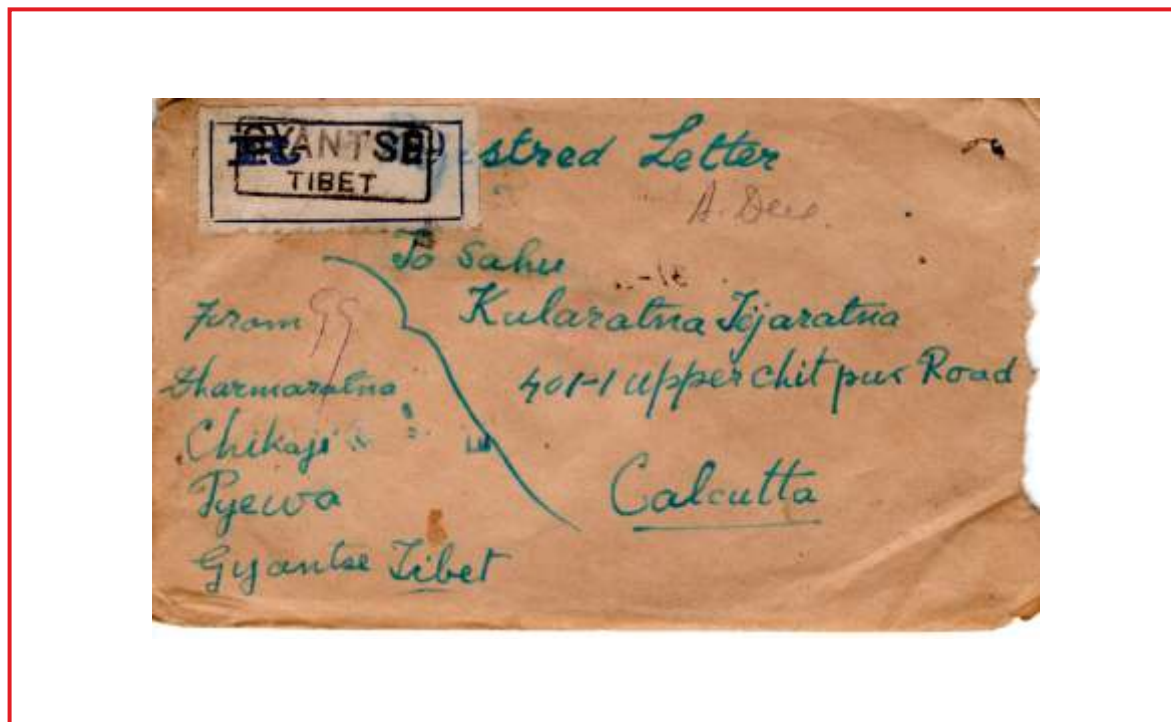 GYANTSE
TIBET
R
stred Letter
To Sahu
Kularatna Tejaratna
401-1 upper chit pur Road
Calcutta
From
Dharmaratna
Chikaji
Pyewa
Gyantse Tibet